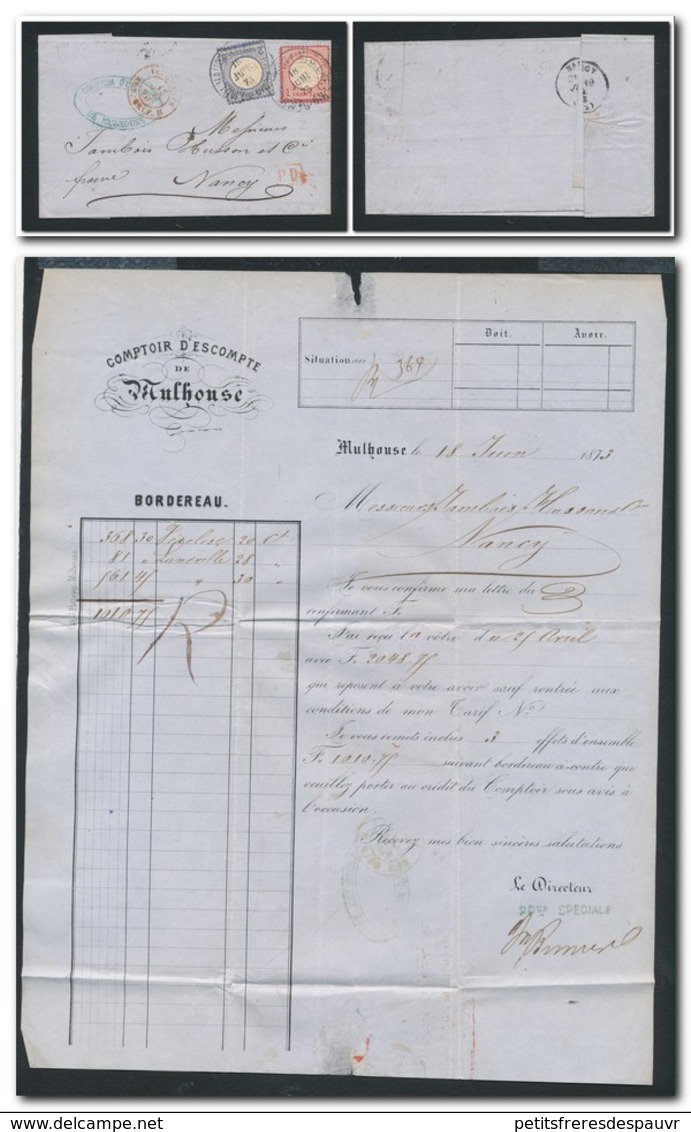 Messieurs
Jambois Husson et Cie
Nancy
P.D.
NANCY
COMPTOIR D'ESCOMPTE
DE
Mulhouse
Situation
364
Doit.
Avoir.
Mulhouse le 18 Juin 1873
BORDEREAU.
Messieurs Jambois, Husson & Cie
Nancy
368 30 20 Ct
81 " Luneville 28 "
561 45 " 30 "
1010.75
Je vous confirme ma lettre du
confirmant F.
J'ai reçu la vôtre du 25 Avril
avec F. 2048.75
qui reposent à votre avoir sauf rentrée aux
conditions de mon Tarif No.
Je vous remets inclus 3 effets d'ensemble
F. 1010.75 suivant bordereau ci-contre que
veuillez porter au crédit du Comptoir sous avis à
l'occasion.
Recevez mes bien sincères salutations
Le Directeur
SPECIALE
delcampe.net
petitsfreresdespauvr